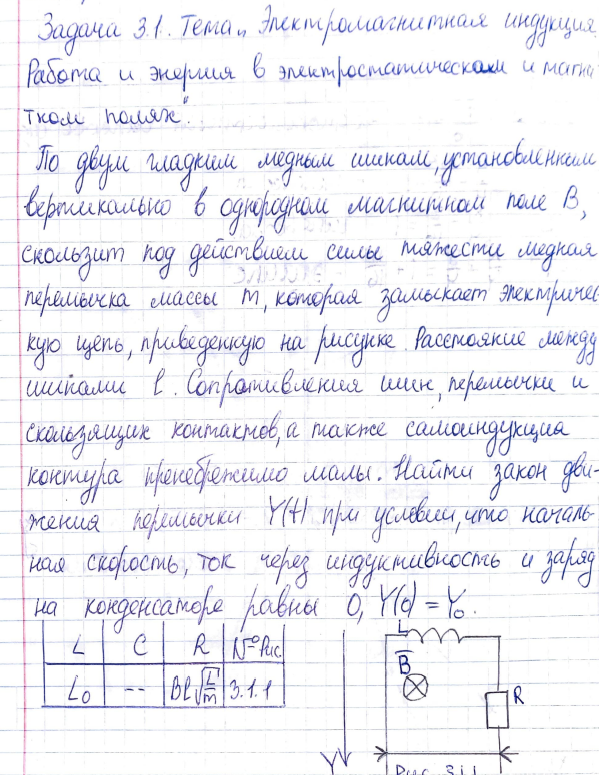 Задача 3.1. Тема „Электромагнитная индукция.
Работа и энергия в электростатическом и магни
тком полях".
По двум гладким медным шинам, установленным
вертикально в однородном магнитном поле B,
скользит под действием силы тяжести медная
перемычка массы m, которая замыкает электричес
кую цепь, приведенную на рисунке. Расстояние между
шинами l. Сопротивления шин, перемычки и
скользящих контактов, а также самоиндукция
контура пренебрежимо малы. Найти закон дви-
жения перемычки Y(t) при условии, что началь-
ная скорость, ток через индуктивность и заряд
на конденсаторе равны 0, Y(0) = Y₀.
L C R №Рис.
L₀ -- Bl√(L/m) 3.1.1
L
B
R
Y
Рис. 3.1.1